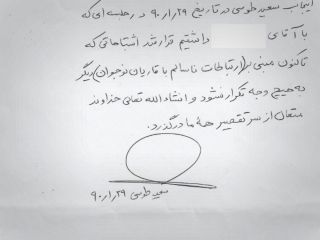 اینجانب سعید طوسی در تاریخ ۹۰/۱/۲۹ در جلسه‌ای که
با آقای داشتیم قرار شد اشتباهاتی که
تاکنون مبنی بر (ارتباطات ناسالم با قاریان نوجوان) دیگر
به هیچ وجه تکرار نشود و انشاء الله تعالی خداوند
متعال از سر تقصیر همه ما درگذرد.
سعید طوسی ۹۰/۱/۲۹